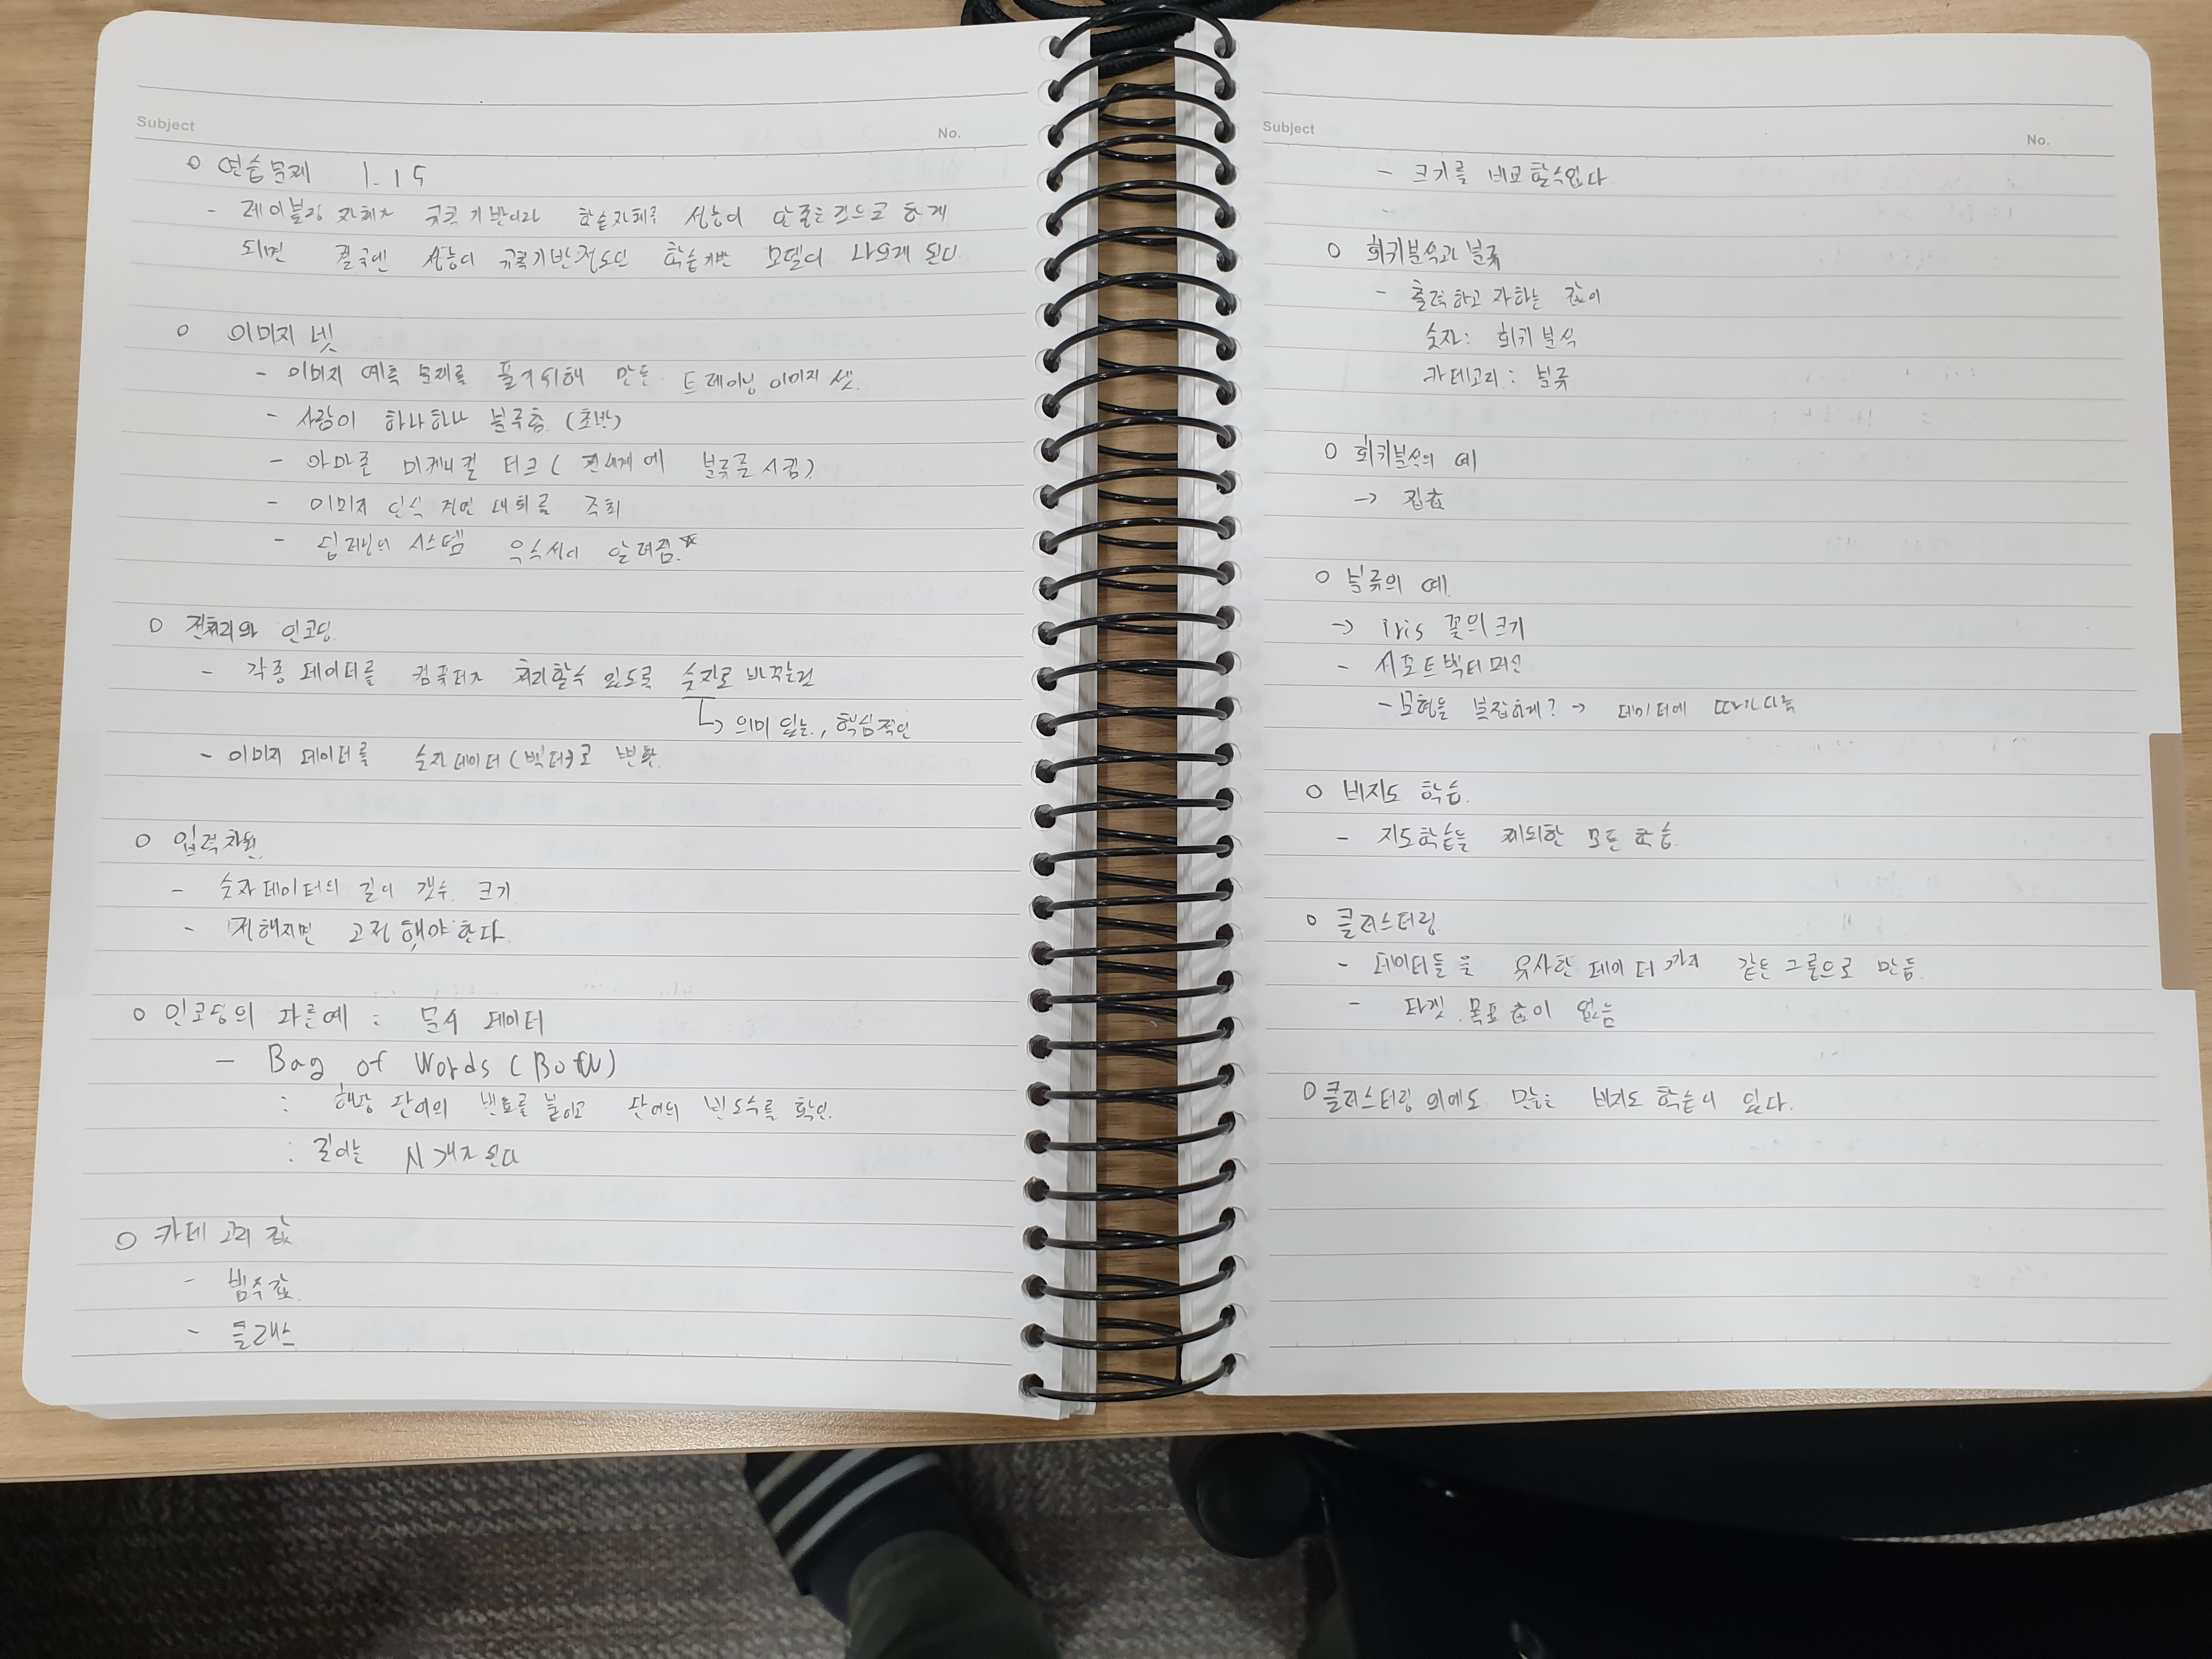 Subject No.
○ 연습문제 1.1.5
- 레이블링 자체가 규칙기반이라 학습자체를 성능이 안좋은것으로 하게
되면 결국엔 성능이 규칙기반정도인 학습기반 모델이 나오게 된다.
○ 이미지 넷
- 이미지 예측 문제를 풀기위해 만든 트레이닝 이미지 셋.
- 사람이 하나하나 분류함. (초반)
- 아마존 미케니컬 터크 ( 전세계에 분류를 시킴)
- 이미지 인식 경연 대회를 주최
- 딥러닝의 시스템 우수성이 알려짐.☆
○ 전처리와 인코딩.
- 각종 데이터를 컴퓨터가 처리할수 있도록 숫자로 바꾸는것
↳ 의미 있는, 핵심적인
- 이미지 데이터를 숫자데이터(벡터)로 변환.
○ 입력차원.
- 숫자데이터의 길이 갯수. 크기.
- 정해지면 고정해야한다.
○ 인코딩의 다른예 : 문서 데이터
- Bag of Words (BoW)
: 해당 단어의 번호를 붙이고 단어의 빈도수를 확인.
: 길이는 N개가 된다
○ 카테고리 값
- 범주값.
- 클래스
Subject No.
- 크기를 비교할수없다
-
○ 회귀분석과 분류
- 출력하고 자하는 값이
숫자: 회귀분석
카테고리: 분류
○ 회귀분석의 예
→ 집값
○ 분류의 예.
→ iris 꽃의크기
- 서포트벡터머신
- 모형을 복잡하게? → 데이터에 따라다름
○ 비지도 학습.
- 지도학습을 제외한 모든 학습.
○ 클러스터링.
- 데이터들을 유사한 데이터 끼리 같은 그룹으로 만듬.
- 타겟. 목표 값이 없음
○ 클러스터링 외에도 많은 비지도 학습이 있다.